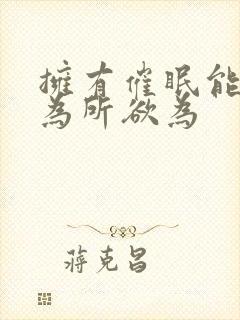 擁有催眠能
為所欲為
蔣克昌